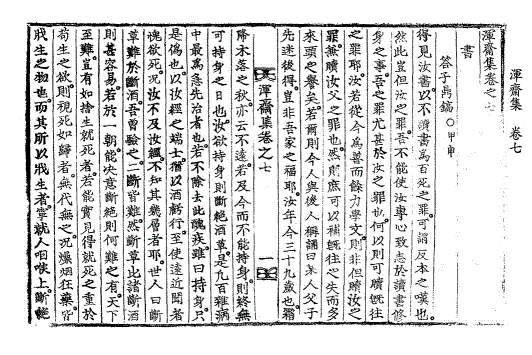 渾齋集 卷七
渾齋集卷之七
書
答子禹鎬 ○甲申
得見汝書以不讀書爲百死之罪可謂反本之嘆也
然此豈但汝之罪吾不能使汝專心致志於讀書修
身之事吾之罪尤甚於汝之罪也何以則可贖旣往
之罪耶汝若從今爲善而餘力學文則非但贖汝之
罪無贖汝父之罪也然則庶可以補旣往之失而多
來頭之譽矣若爾則今人與後人稱誦曰某人父子
先迷後得豈非吾家之福耶汝年今三十九歲也霜
渾齋集卷之七 一
降木落之秋亦云不遠若及今而不能持身則終無
可持身之日也汝欲持身則斷絶酒草是九百雜病
中最爲急先治者也若不除去此醜疾雖曰持身只
是僞也以汝經之端士猶以酒虧行至使遠近聞者
愧欲死況汝不及汝經不知其幾層者耶世人曰斷
草難於斷酒吾曾驗之一斷皆難然斷草比諸斷酒
則甚容易若於一朝能決意斷絶則何難之有天下
至難豈有如捨生就死者若能實見得就死之重於
苟生之欲則視死如歸者無代無之況爐烟狂藥皆
戕生之物也而其所以戕生者掌就人咽喉上斷絶